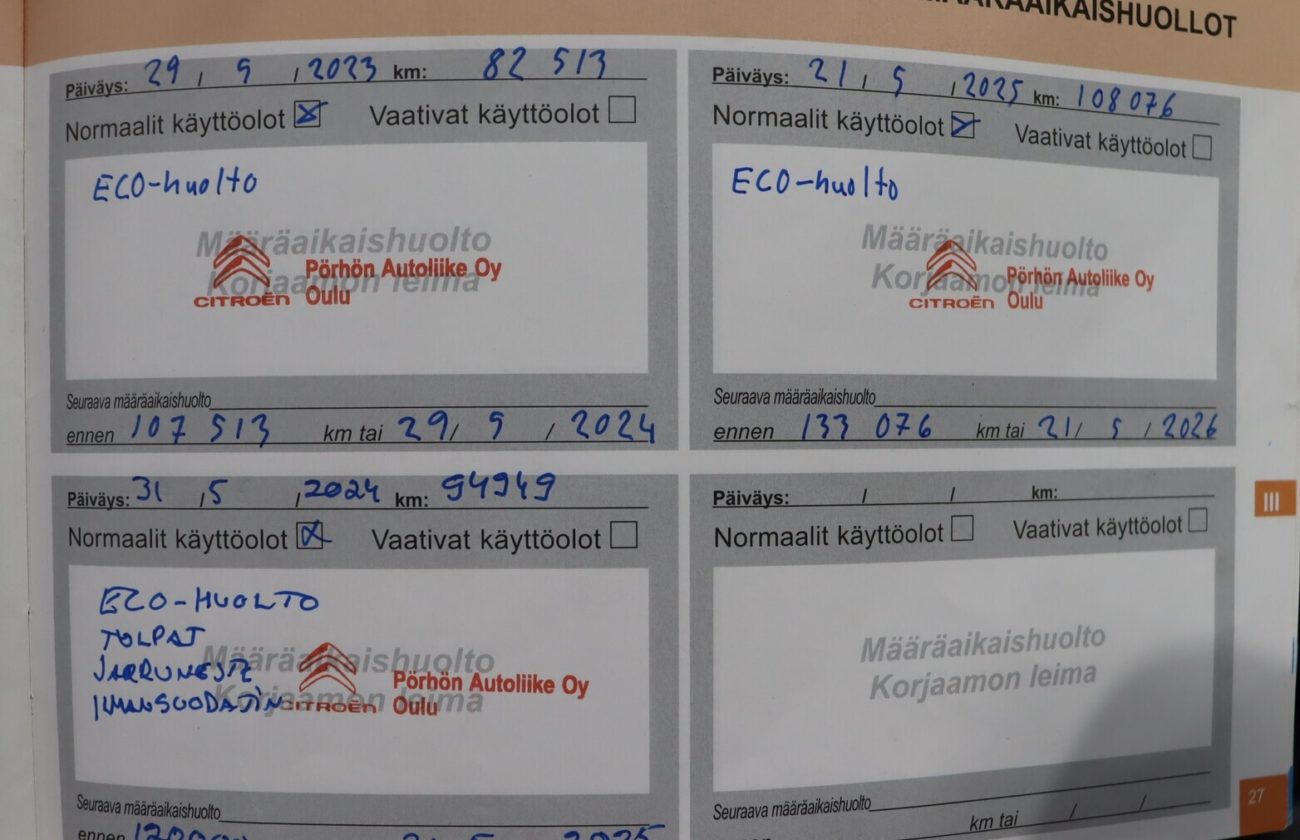 MÄÄRÄAIKAISHUOLLOT
Päiväys: 29 / 9 / 2023 km: 82 513
Normaalit käyttöolot Vaativat käyttöolot
ECO-huolto
Määräaikaishuolto
Korjaamon leima
CITROËN
Pörhön Autoliike Oy
Oulu
Seuraava määräaikaishuolto
ennen 107 513 km tai 29 / 9 / 2024
Päiväys: 21 / 5 / 2025 km: 108 076
Normaalit käyttöolot Vaativat käyttöolot
ECO-huolto
Määräaikaishuolto
Korjaamon leima
CITROËN
Pörhön Autoliike Oy
Oulu
Seuraava määräaikaishuolto
ennen 133 076 km tai 21 / 5 / 2026
Päiväys: 31 / 5 / 2024 km: 94949
Normaalit käyttöolot Vaativat käyttöolot
ECO-HUOLTO
TULPAT
JARRUNESTE
ILMANSUODATIN
Määräaikaishuolto
Korjaamon leima
CITROËN
Pörhön Autoliike Oy
Oulu
Seuraava määräaikaishuolto
ennen 5 2025
Päiväys: / / km:
Normaalit käyttöolot Vaativat käyttöolot
Määräaikaishuolto
Korjaamon leima
Seuraava määräaikaishuolto
km tai / /
III
27